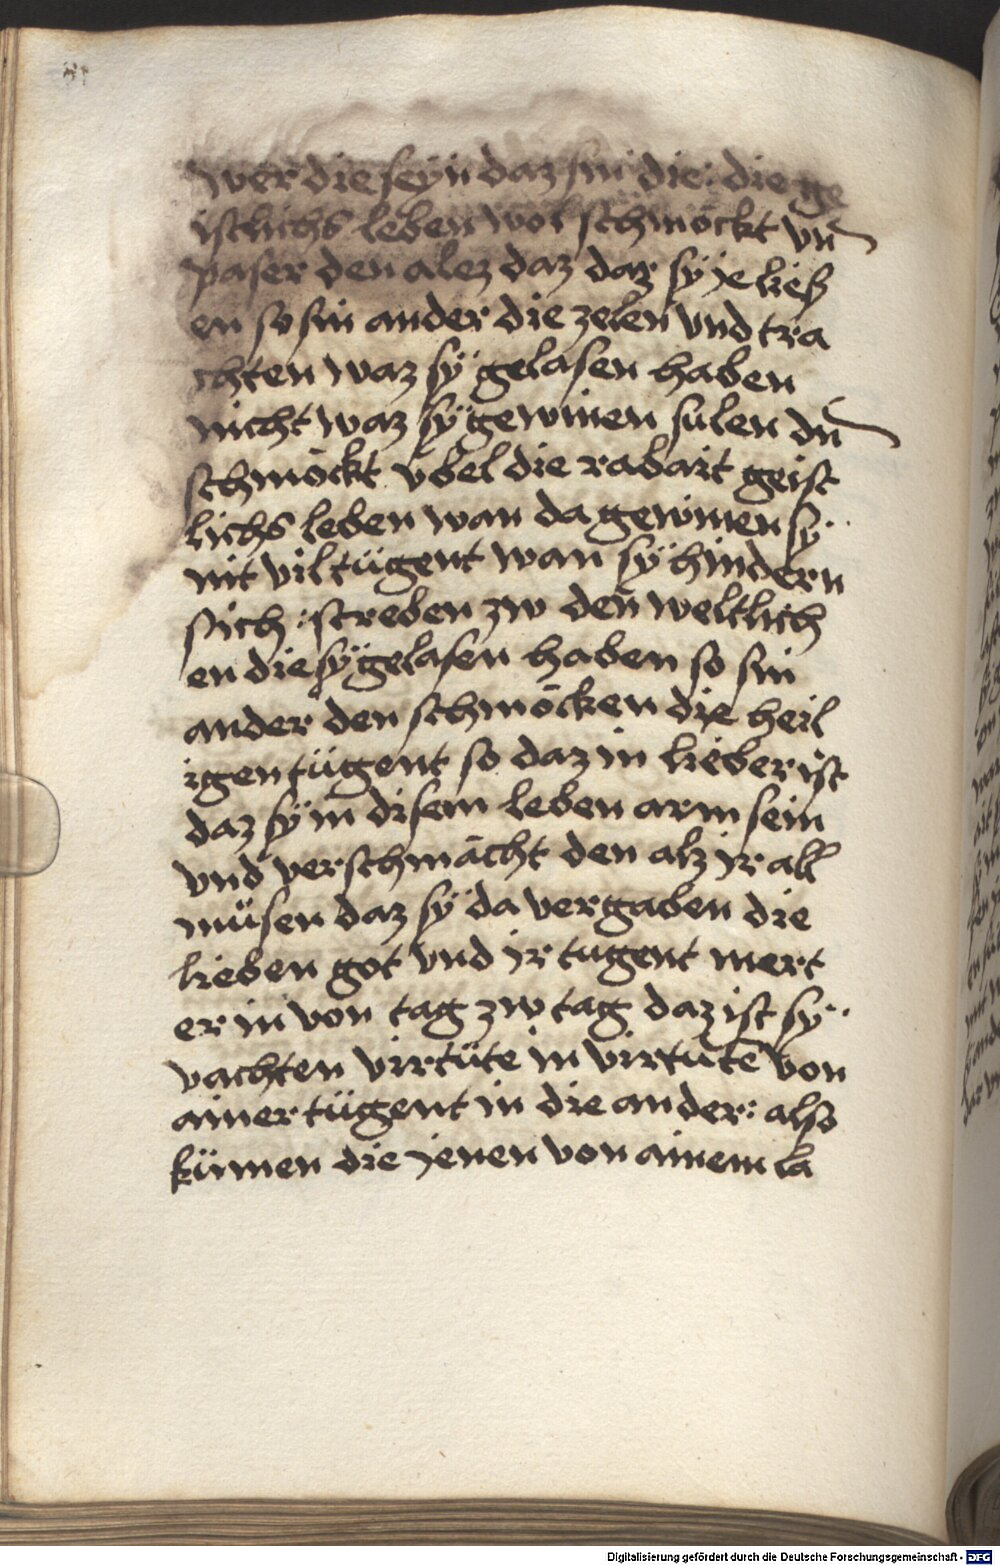 wer die seÿn daz sin die: die ge
istlichs leben wol schmöckt vn̄
paser den alez daz daz sÿ ÿe ließ
en so sin ander die zelen vnd tra
chten waz sÿ gelasen haben
nicht waz sÿ gewinen sülen dn̄
schmöckt vbel die rabait geist
lichs leben wan da gewinen sÿ
nit vil tügent wan sÿ hindern
sich : streben zw den̄ weltlich
en die sÿ gelasen haben so sin
ander den schmöcken die heil
igen tügent so daz in lieber ist
daz sÿ in disem leben arm sein
vnd verschmächt den alz ir all
müsen daz sÿ da vergaben die
lieben got vnd ir tugent mert
er in von tag zw tag daz ist sÿ
vachten virtüte in virtutē von
ainer tügent in die ander: also
künnen die ÿenen von ainem la
Digitalisierung gefördert durch die Deutsche Forschungsgemeinschaft - DFG